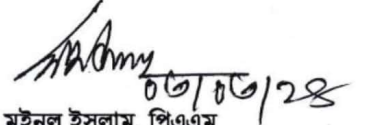 ০৩/০৩/২৪
মইনুল ইসলাম পিএএম